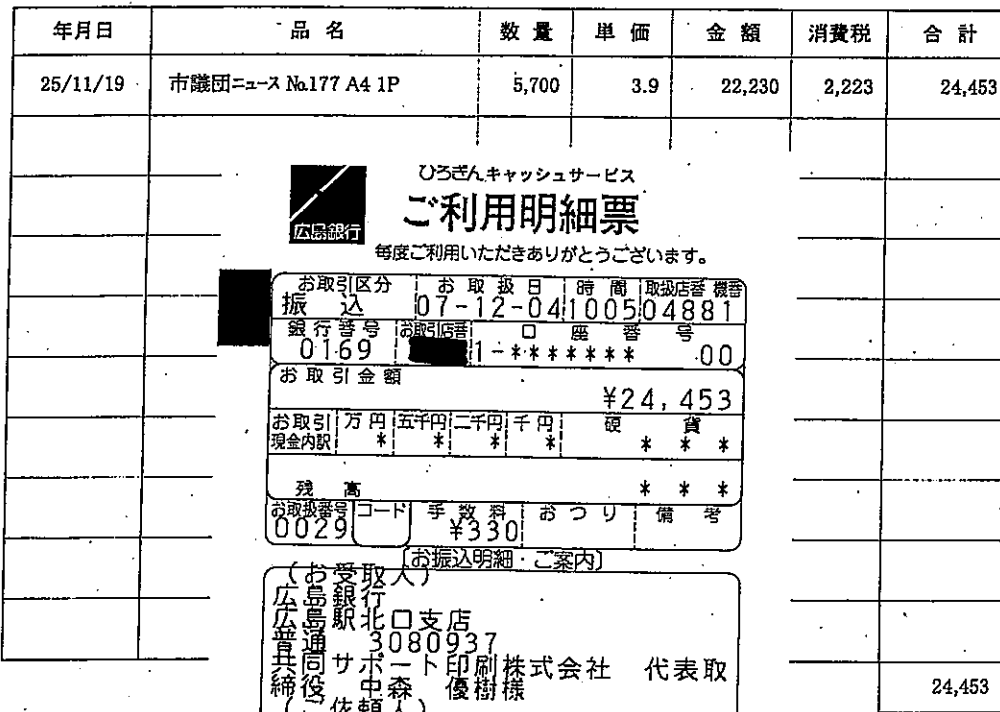 年月日 品名 数量 単価 金額 消費税 合計
25/11/19 市議団ニュース No.177 A4 1P 5,700 3.9 22,230 2,223 24,453
ひろぎんキャッシュサービス
広島銀行
ご利用明細票
毎度ご利用いただきありがとうございます。
お取引区分 お取扱日 時間 取扱店番 機番
振込 07-12-04 1005 04881
銀行番号 お取引店番 口座番号
0169 1-******* 00
お取引金額
¥24,453
お取引現金内訳 万円 五千円 二千円 千円 硬貨
* * * * * * *
残高 * * *
お取扱番号 コード 手数料 おつり 備考
0029 ¥330
[お振込明細・ご案内]
(お受取人)
広島銀行
広島駅北口支店
普通 3080937
共同サポート印刷株式会社 代表取
締役 中森 優樹様
(ご依頼人)
24,453